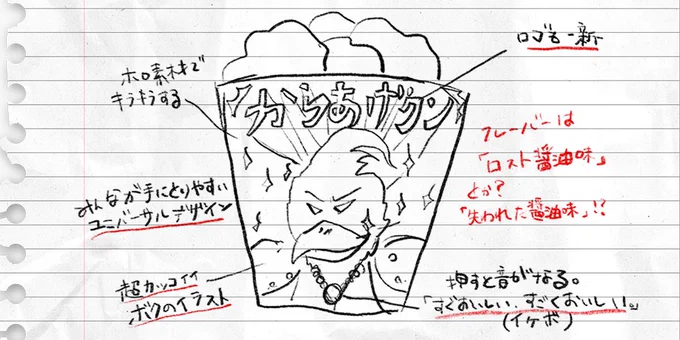 ロゴも一新
ホロ素材で
キラキラする
からあげクン
フレーバーは
「ロスト醤油味」
とか?
「失われた醤油味」!?
みんなが手にとりやすい
ユニバーサルデザイン
超カッコイイ
ボクのイラスト
押すと音がなる。
「すごおいしい、すごくおいしい!。」
(イケボ)